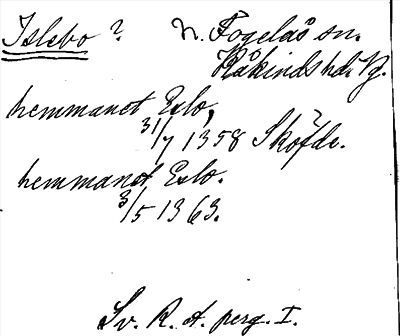 Islebo? N. Fogelås sn.
Kåkinds hd. Vg.
hemmanet Eslo,
31/7 1358 Sköfde.
hemmanet Eslo.
3/5 1363.
Sv. R. A. perg. I.